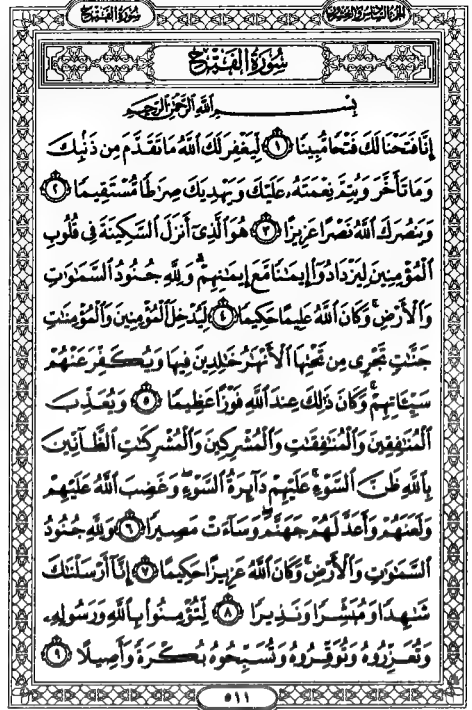 سُورَةُ الفَتْحِ
الجُزْءُ السَّادِسُ وَالعِشْرُونَ
سُورَةُ الفَتْحِ
بِسْمِ ٱللَّهِ ٱلرَّحْمَٰنِ ٱلرَّحِيمِ
إِنَّا فَتَحْنَا لَكَ فَتْحًا مُّبِينًا ١ لِّيَغْفِرَ لَكَ ٱللَّهُ مَا تَقَدَّمَ مِن ذَنۢبِكَ
وَمَا تَأَخَّرَ وَيُتِمَّ نِعْمَتَهُۥ عَلَيْكَ وَيَهْدِيَكَ صِرَٰطًا مُّسْتَقِيمًا ٢
وَيَنصُرَكَ ٱللَّهُ نَصْرًا عَزِيزًا ٣ هُوَ ٱلَّذِىٓ أَنزَلَ ٱلسَّكِينَةَ فِى قُلُوبِ
ٱلْمُؤْمِنِينَ لِيَزْدَادُوٓا۟ إِيمَٰنًا مَّعَ إِيمَٰنِهِمْ ۗ وَلِلَّهِ جُنُودُ ٱلسَّمَٰوَٰتِ
وَٱلْأَرْضِ ۚ وَكَانَ ٱللَّهُ عَلِيمًا حَكِيمًا ٤ لِّيُدْخِلَ ٱلْمُؤْمِنِينَ وَٱلْمُؤْمِنَٰتِ
جَنَّٰتٍ تَجْرِى مِن تَحْتِهَا ٱلْأَنْهَٰرُ خَٰلِدِينَ فِيهَا وَيُكَفِّرَ عَنْهُمْ
سَيِّـَٔاتِهِمْ ۚ وَكَانَ ذَٰلِكَ عِندَ ٱللَّهِ فَوْزًا عَظِيمًا ٥ وَيُعَذِّبَ
ٱلْمُنَٰفِقِينَ وَٱلْمُنَٰفِقَٰتِ وَٱلْمُشْرِكِينَ وَٱلْمُشْرِكَٰتِ ٱلظَّآنِّينَ
بِٱللَّهِ ظَنَّ ٱلسَّوْءِ ۚ عَلَيْهِمْ دَآئِرَةُ ٱلسَّوْءِ ۖ وَغَضِبَ ٱللَّهُ عَلَيْهِمْ
وَلَعَنَهُمْ وَأَعَدَّ لَهُمْ جَهَنَّمَ ۖ وَسَآءَتْ مَصِيرًا ٦ وَلِلَّهِ جُنُودُ
ٱلسَّمَٰوَٰتِ وَٱلْأَرْضِ ۚ وَكَانَ ٱللَّهُ عَزِيزًا حَكِيمًا ٧ إِنَّآ أَرْسَلْنَٰكَ
شَٰهِدًا وَمُبَشِّرًا وَنَذِيرًا ٨ لِّتُؤْمِنُوا۟ بِٱللَّهِ وَرَسُولِهِۦ
وَتُعَزِّرُوهُ وَتُوَقِّرُوهُ وَتُسَبِّحُوهُ بُكْرَةً وَأَصِيلًا ٩
٥١١